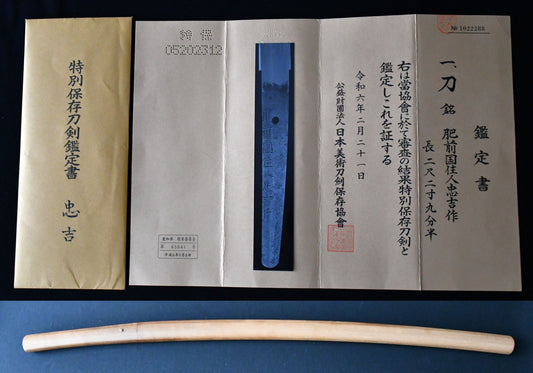 特別保存刀剣鑑定書
忠吉
05202312
№ 1022288
鑑定書
一、刀 銘 肥前国住人忠吉作
長 二尺二寸九分半
右は當協會に於て審査の結果特別保存刀剣と
鑑定しこれを証する
令和六年二月二十一日
公益財團法人 日本美術刀剣保存協會